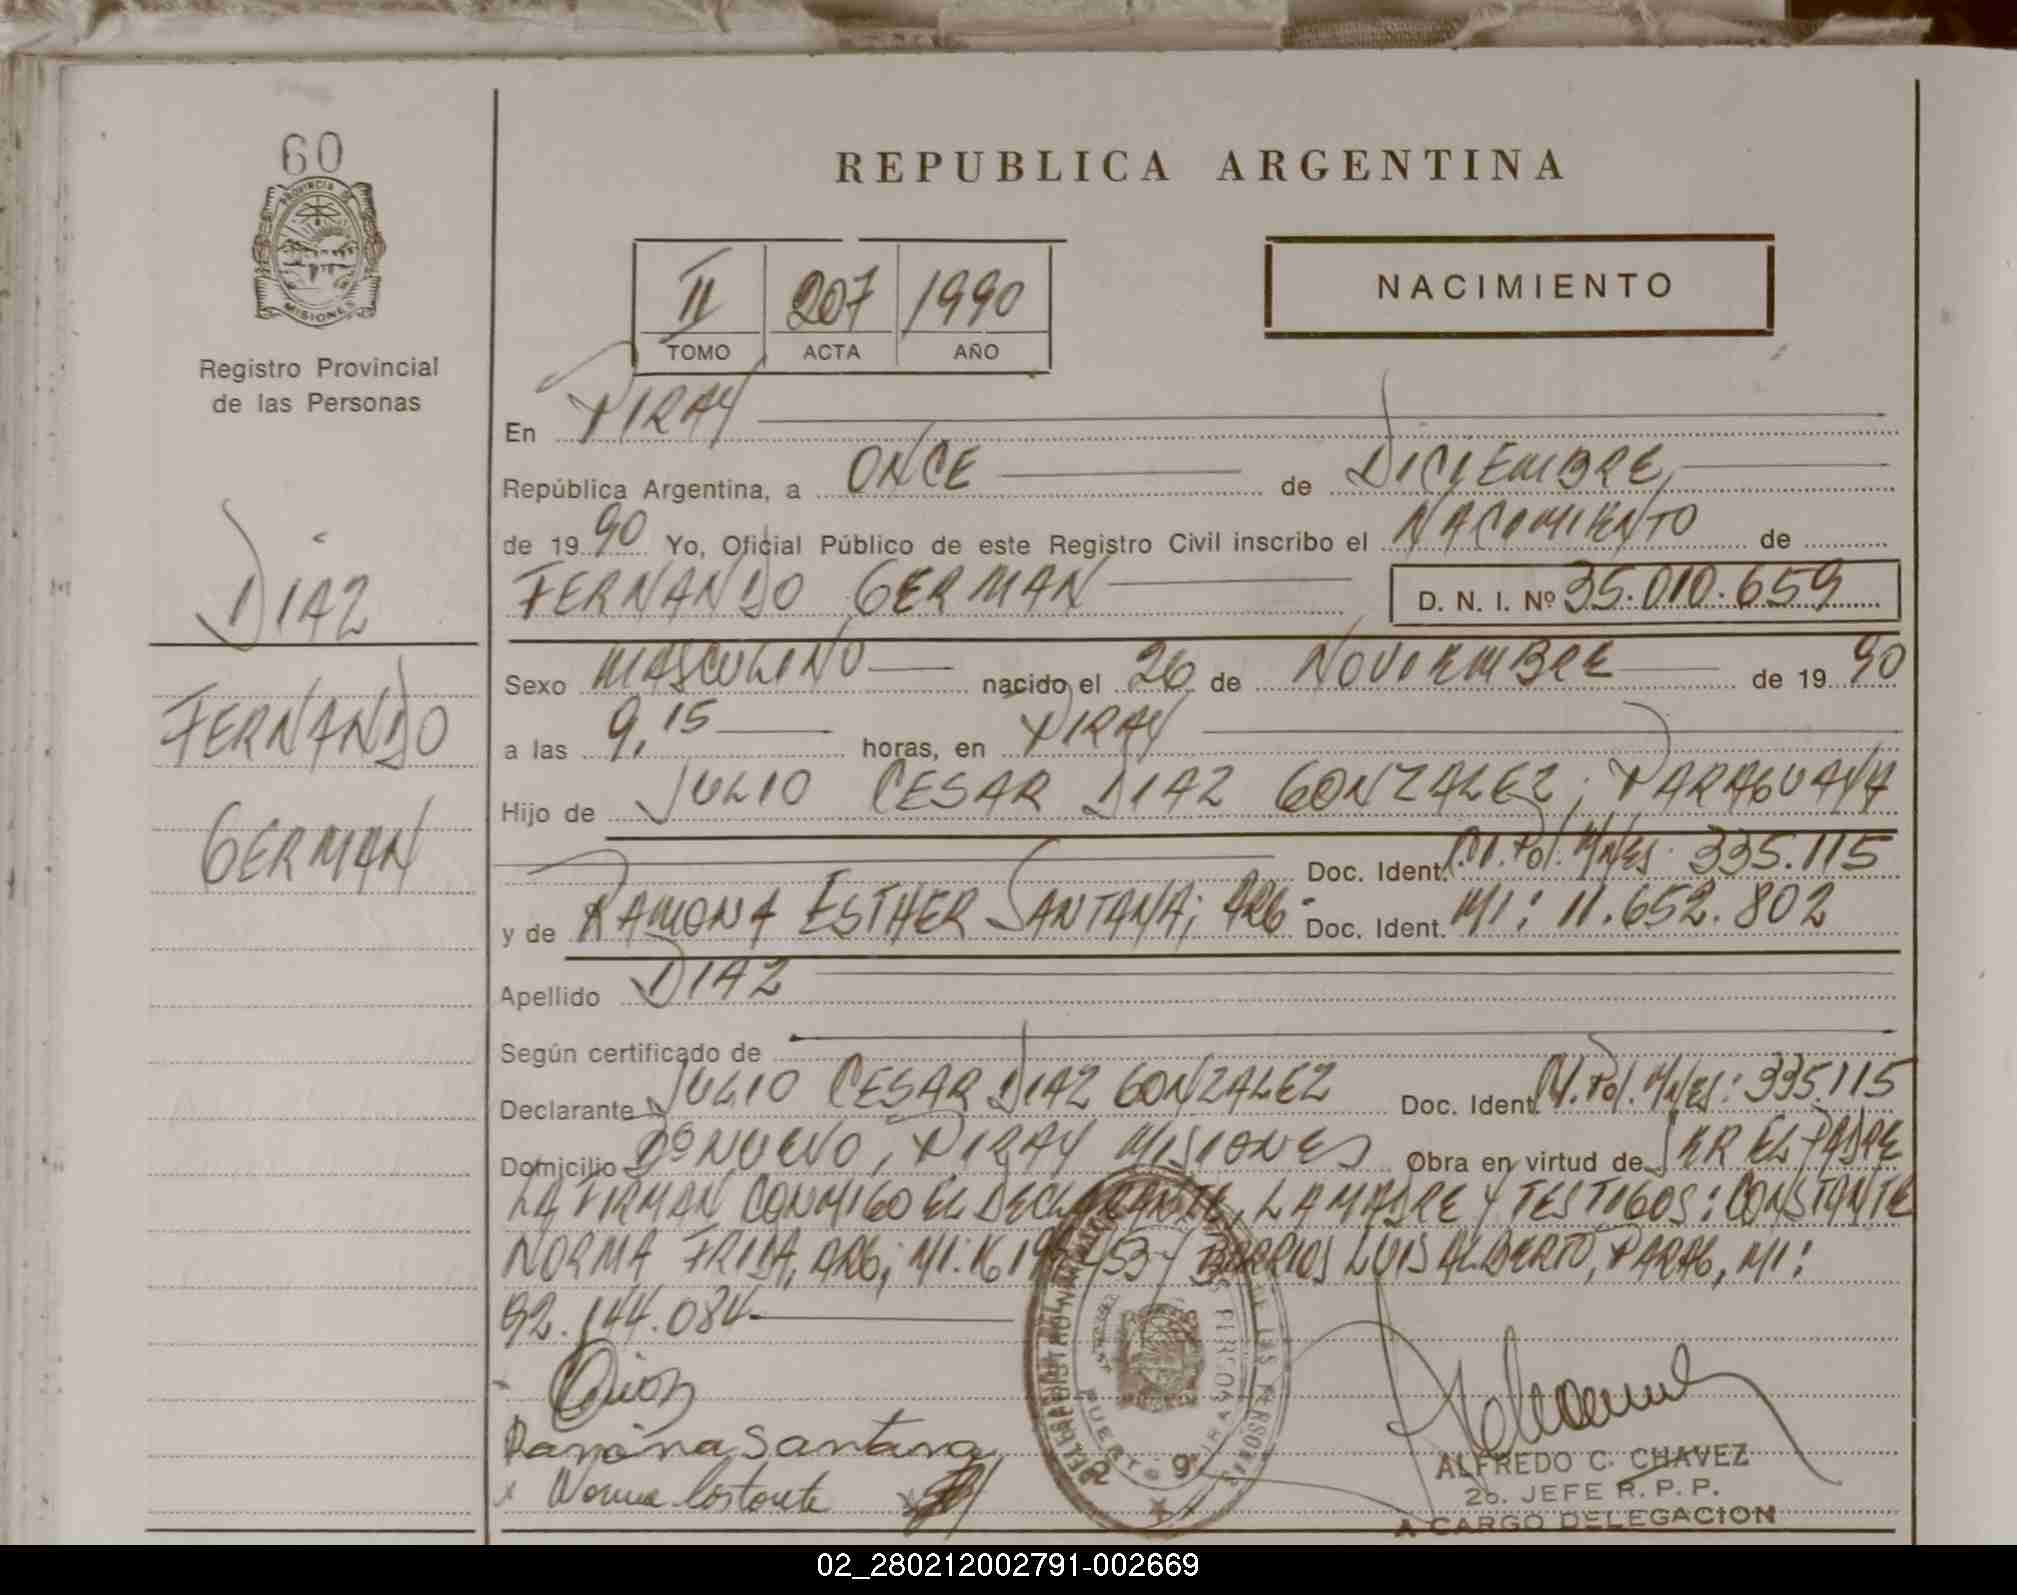 60
PROVINCIA DE
MISIONES
Registro Provincial
de las Personas
DIAZ
FERNANDO
GERMAN
REPUBLICA ARGENTINA
II 207 1990
TOMO ACTA AÑO
NACIMIENTO
En PIRAY
República Argentina, a ONCE de DICIEMBRE
de 1990 Yo, Oficial Público de este Registro Civil inscribo el NACIMIENTO de
FERNANDO GERMAN D. N. I. Nº 35.010.659
Sexo MASCULINO nacido el 26 de NOVIEMBRE de 1990
a las 9,15 horas, en PIRAY
Hijo de JULIO CESAR DIAZ GONZALEZ; PARAGUAYA
Doc. Ident. C.I. Pol. Mnes. 335.115
y de RAMONA ESTHER SANTANA; ARG. Doc. Ident. MI: 11.652.802
Apellido DIAZ
Según certificado de
Declarante JULIO CESAR DIAZ GONZALEZ Doc. Ident. C.I. Pol. Mnes: 335.115
Domicilio Bº NUEVO, PIRAY MISIONES Obra en virtud de SER EL PADRE
LA FIRMAN CONMIGO EL DECLARANTE, LA MADRE Y TESTIGOS: CONSTANTE
NORMA FRIDA, ARG; MI: 16 453 Y BARRIOS LUIS ALBERTO, PARAG, MI:
92.144.084
Ramona Santana
x Norma Costante
ALFREDO C. CHAVEZ
2o. JEFE R. P. P.
A CARGO DELEGACION
02_280212002791-002669